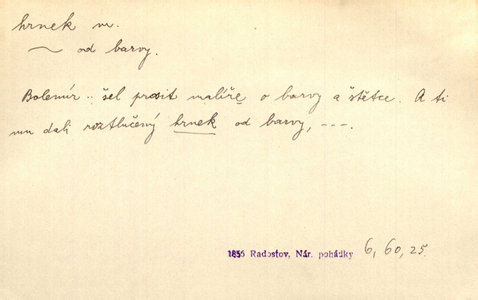 hrnek m.
~ od barvy.
Bolemír .. šel prosit malíře o barvy a štětce. A ti
mu dali roztlučený hrnek od barvy, ---.
1856 Radostov, Nár. pohádky 6, 60, 25.